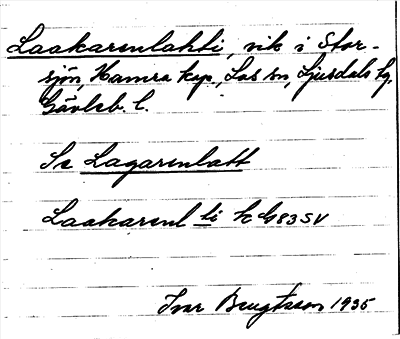 Laakarenlahti, vik i Stor-
sjön, Hamra kap., Los sn, Ljusdals tg,
Gävleb. l.
Se Lagarenlatt
Laakarenl ti k G83SV
Ivar Bengtsson 1935